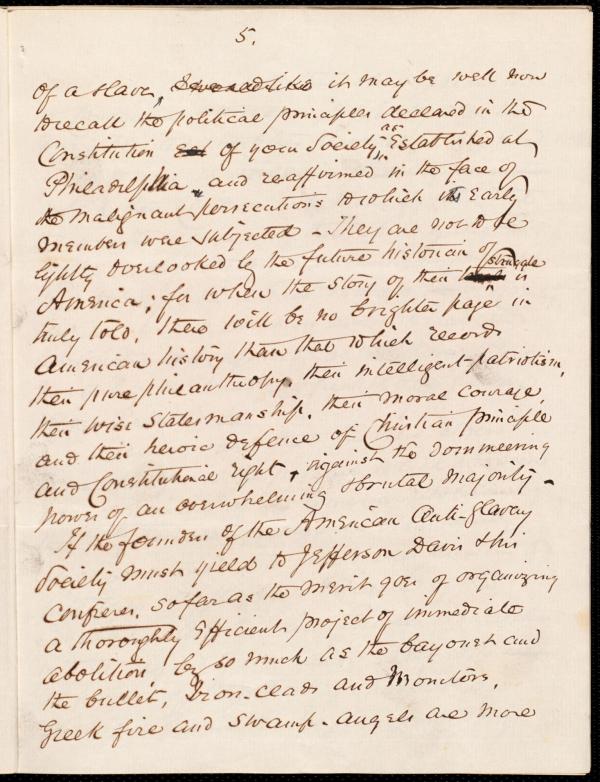 5.
of a slave, it may be well now
to recall the political principles declared in the
Constitution of your Society, as Established at
Philadelphia, and reaffirmed in the face of
the malignant persecutions to which its Early
members were subjected - They are not to be
lightly overlooked by the future historian of
America; for when the story of their struggle is
truly told, there will be no brighter page in
American history than that which records
their pure philanthropy, their intelligent patriotism,
their wise statesmanship, their moral courage,
and their heroic defence of Christian principle
and Constitutional right, against the domineering
power of an overwhelming & brutal majority -
If the founders of the American Anti-Slavery
Society must yield to Jefferson Davis & his
confreres, so far as the merit goes of organizing
a thoroughly Efficient project of immediate
abolition, by so much as the bayonet and
the bullet, Iron-clads and Monitors,
Greek fire and Swamp-angels are more